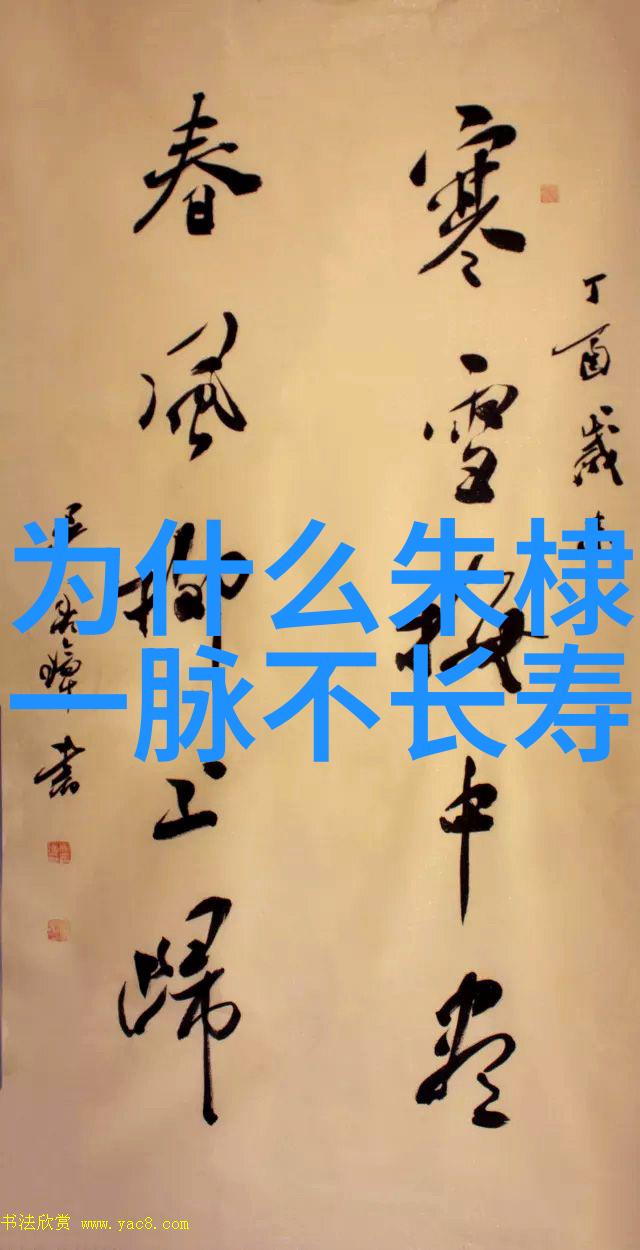 丁酉歲
寒雪梅中尽
春風柳上歸
書
为什么朱棣
一脉不长寿
书法欣赏 www.yac8.com